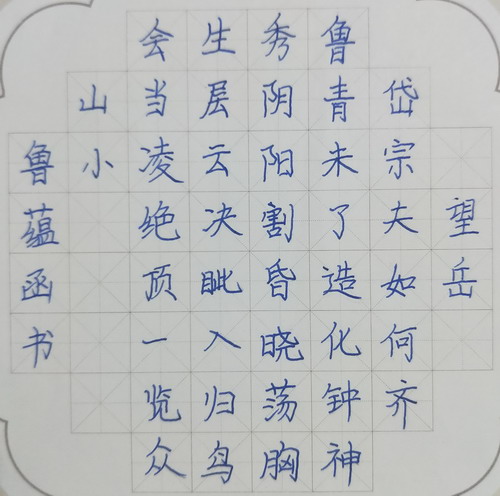 望岳
岱宗夫如何齐
鲁青未了造化钟神
秀阴阳割昏晓荡胸
生层云决眦入归鸟
会当凌绝顶一览众
山小
鲁蕴函书